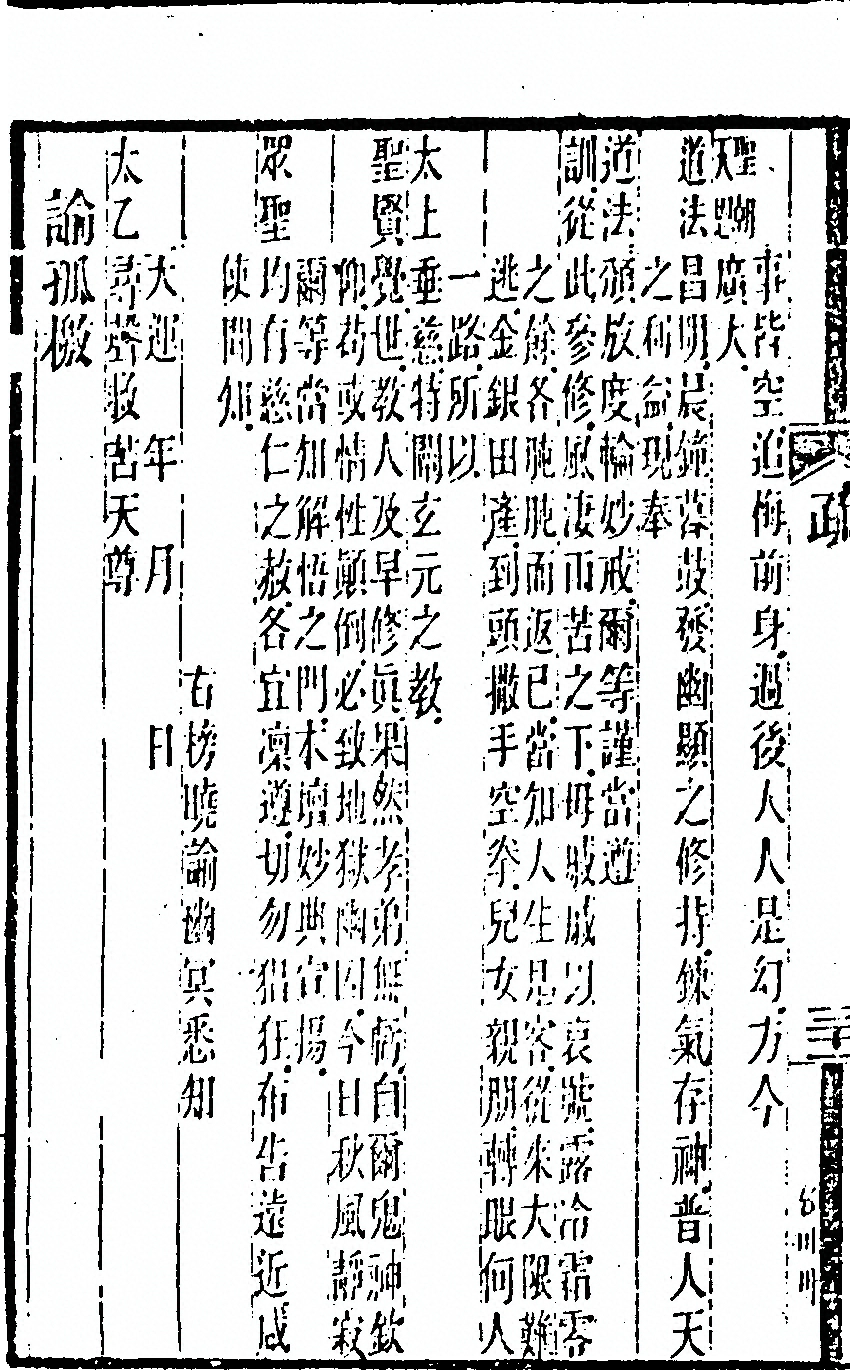 事皆空追悔前身過後人人是幻方今
聖朝
天恩廣大
道法昌明晨鐘暮鼓發幽顯之修持鍊氣存神普人天
之利益現奉
道法頒放度輪妙戒爾等謹當遵
訓從此參修風淒雨苦之下毋戚戚以哀號露冷霜零
之餘各肫肫而返已當知人生是客從來大限難
逃金銀田產到頭撒手空拳兒女親朋轉眼何人
一路所以
太上垂慈特闡玄元之教
聖賢覺世教人及早修真果然孝弟無虧自爾鬼神欽
仰苟或情性顛倒必致地獄幽囚今日秋風靜寂
爾等當知解悟之門本壇妙典宣揚
眾聖均有慈仁之赦各宜凜遵切勿猖狂布告遠近咸
使聞知
右榜曉諭幽冥悉知
大運 年 月 日
太乙尋聲救苦天尊
諭孤檄
疏
三十三